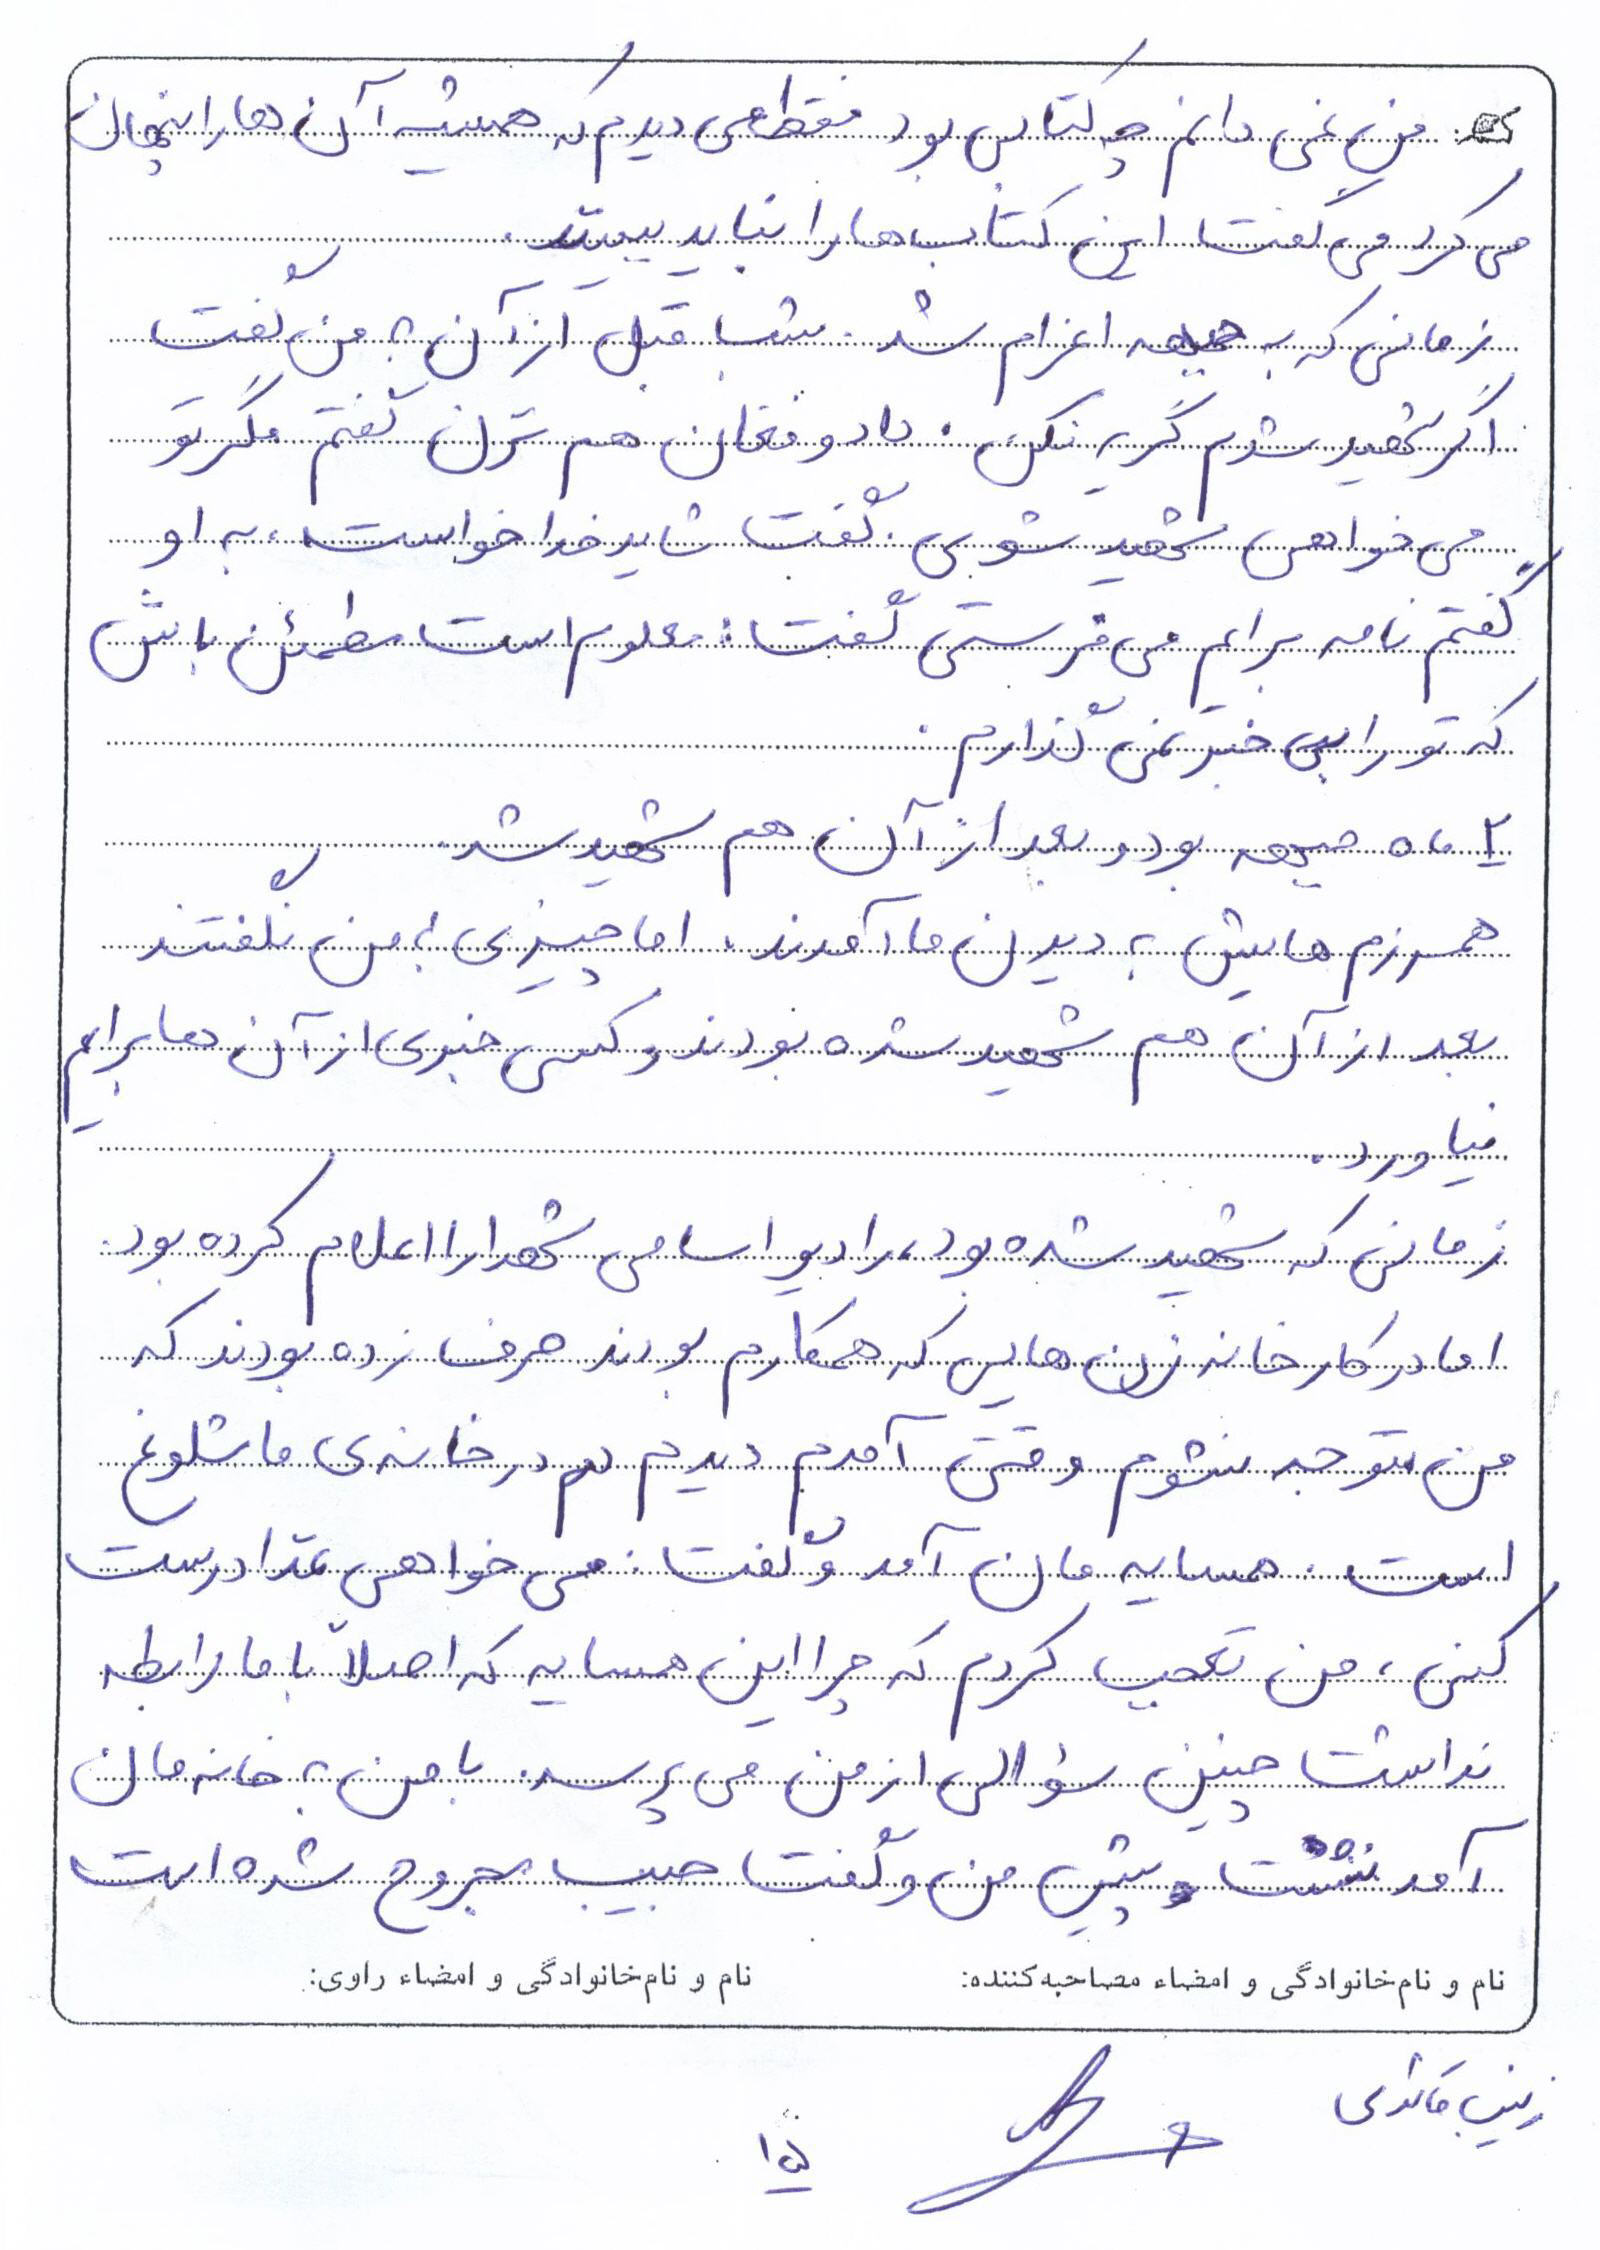 من نمی دانم چه کتابی بود فقط می دیدم که همیشه آن ها را پنهان
می کرد می گفت این کتاب ها را نباید ببینند.
زمانی که به جبهه اعزام شد. شب قبل از آن به من گفت
اگر شهید شدم گریه نکن. داد و فغان هم نزن گفتم مگر تو
می خواهی شهید شوی. گفت شاید خدا خواست، به او
گفتم نامه برایم می فرستی گفت: معلوم است مطمئن باش
که تو را بی خبر نمی گذارم.
۲ ماه جبهه بود و بعد از آن هم شهید شد.
همرزم هایش به دیدن ما آمدند، اما چیزی به من نگفتند
بعد از آن هم شهید شده بودند و کسی خبری از آن ها برایم
نیاورد.
زمانی که شهید شده بود، رادیو اسامی شهدا را اعلام کرده بود.
اما در کارخانه زن هایی که همکارم بودند حرف زده بودند که
من متوجه نشوم وقتی آمدم دیدم دم در خانه ی ما شلوغ
است. همسایه مان آمد و گفت: می خواهی غذا درست
کنی، من تعجب کردم که چرا این همسایه که اصلاً با ما رابطه
نداشت چنین سؤالی از من می پرسد. با من به خانه مان
آمد نشست پیش من و گفت حبیب مجروح شده است
نام و نام‌خانوادگی و امضاء مصاحبه‌کننده: نام و نام‌خانوادگی و امضاء راوی:
زینب
۱۵